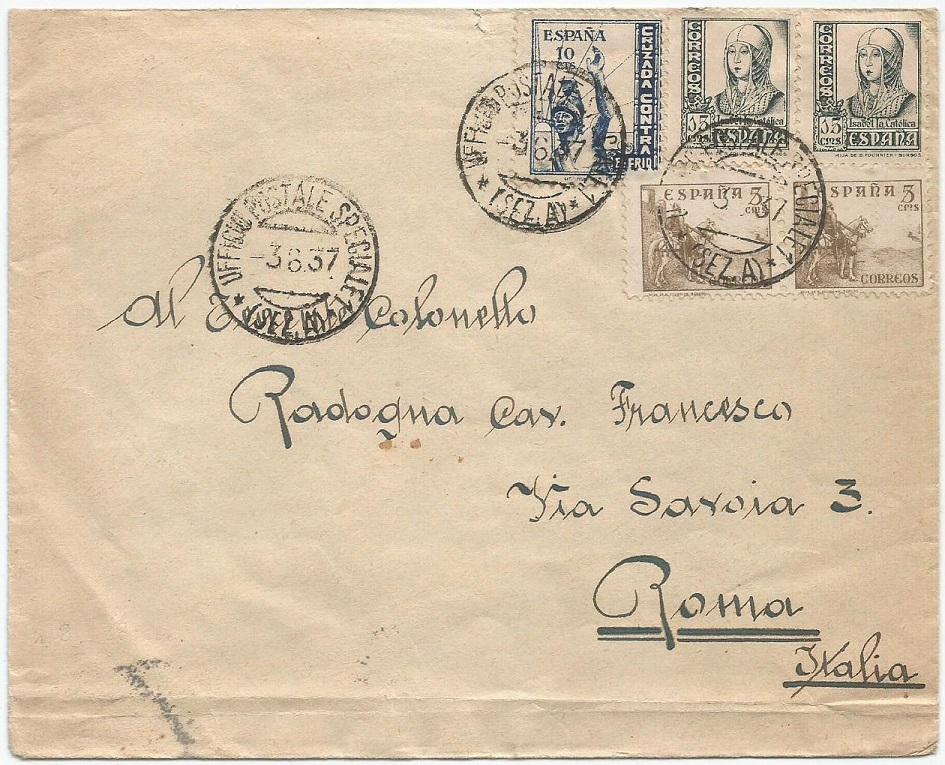 ESPAÑA
10
CRUZADA CONTRA
EL FRIO
CORREOS
15
CMS
Isabel la Católica
ESPAÑA
CORREOS
15
CMS
Isabel la Católica
ESPAÑA
HIJA DE B. FOURNIER - BURGOS
UFFICIO POSTALE
-3.6.37
(SEZ. A)
ESPAÑA 5
CMS
CORREOS
ESPAÑA 5
CMS
CORREOS
3 37
(SEZ. A)
UFFICIO POSTALE SPECIALE 1
-3.6.37
(SEZ. A)
Al Colonello
Radogna Cav. Francesco
Via Savoia 3.
Roma
Italia